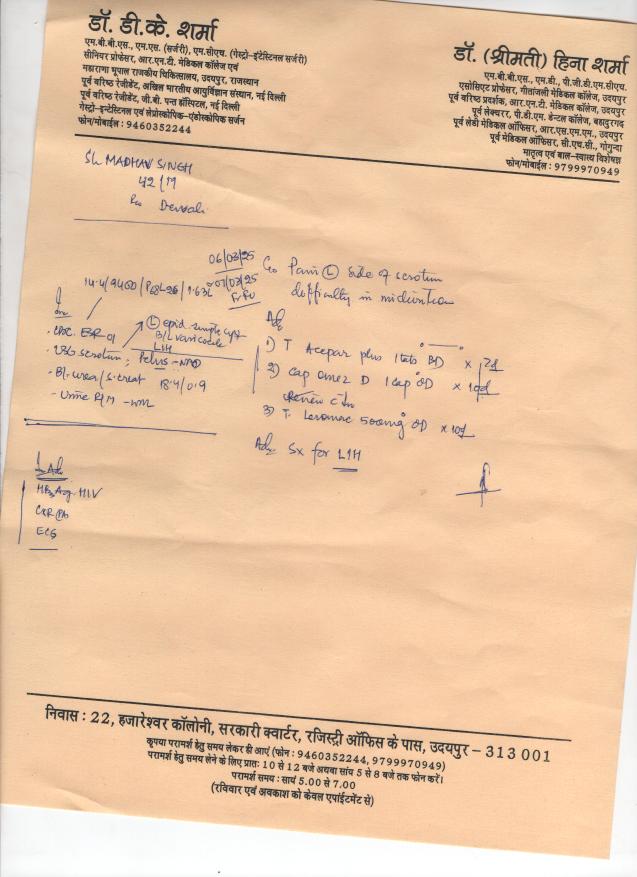 डॉ. डी.के. शर्मा
एम.बी.बी.एस., एम.एस. (सर्जरी), एम.सीएच. (गेस्ट्रो-इंटेस्टिनल सर्जरी)
सीनियर प्रोफेसर, आर.एन.टी. मेडिकल कॉलेज एवं
महाराणा भूपाल राजकीय चिकित्सालय, उदयपुर, राजस्थान
पूर्व वरिष्ठ रेजीडेंट, अखिल भारतीय आयुर्विज्ञान संस्थान, नई दिल्ली
पूर्व वरिष्ठ रेजीडेंट, जी.बी. पन्त हॉस्पिटल, नई दिल्ली
गेस्ट्रो-इन्टेस्टिनल एवं लेप्रोस्कोपिक-एंडोस्कोपिक सर्जन
फोन/मोबाईल : 9460352244
डॉ. (श्रीमती) हिना शर्मा
एम.बी.बी.एस., एम.डी., पी.जी.डी.एम.सीएच.
एसोसिएट प्रोफेसर, गीतांजली मेडिकल कॉलेज, उदयपुर
पूर्व वरिष्ठ प्रदर्शक, आर.एन.टी. मेडिकल कॉलेज, उदयपुर
पूर्व लेक्चरर, पी.डी.एम. डेन्टल कॉलेज, बहादुरगढ़
पूर्व लेडी मेडिकल ऑफिसर, आर.एस.एम.एम., उदयपुर
पूर्व मेडिकल ऑफिसर, सी.एच.सी., गोगुन्दा
मातृत्व एवं बाल-स्वास्थ्य विशेषज्ञ
फोन/मोबाईल : 9799970949
Sh MADHAV SINGH
42/M
R/o Dewali
06/03/25
C/o Pain (L) side of scrotum
difficulty in micturition
07/03/25
F/U
14.4/9400/P68L26/1.63L
Inv
- CBC. ESR 01
- USG scrotum; Pelvis - NAD
(L) epid. simple cyst
B/L varicocele
LIH
- Bl. urea/S. creat 18.4/0.9
- Urine R/M - WNL
Adv
1) T Acepar plus 1 tab BD x 7d
2) Cap Omez D 1 cap OD x 10d
Review
3) T. 500mg OD x 10d
Adv Sx for LIH
Adv
HBsAg HIV
CXR (PA)
ECG
निवास : 22, हजारेश्वर कॉलोनी, सरकारी क्वार्टर, रजिस्ट्री ऑफिस के पास, उदयपुर – 313 001
कृपया परामर्श हेतु समय लेकर ही आएं (फोन : 9460352244, 9799970949)
परामर्श हेतु समय लेने के लिए प्रातः 10 से 12 बजे अथवा सांय 5 से 8 बजे तक फोन करें।
परामर्श समय : सायं 5.00 से 7.00
(रविवार एवं अवकाश को केवल एपांईटमेंट से)